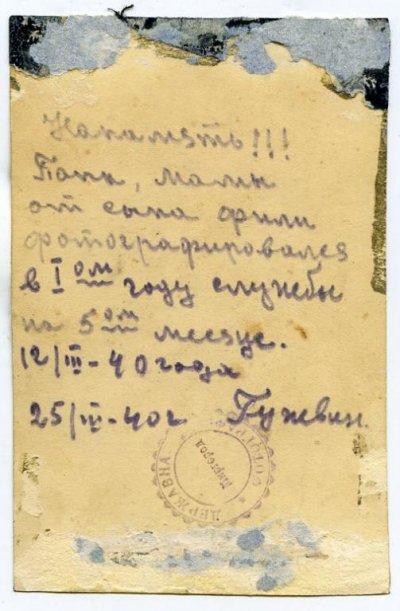 Напамять!!!
Папи, мами
от сына фили
фотографировался
в I ом году службы
на 5 ом месяце.
12/III-40 года
25/IV-40г Гужвин.
ДЕРЖАВНА
Миргород